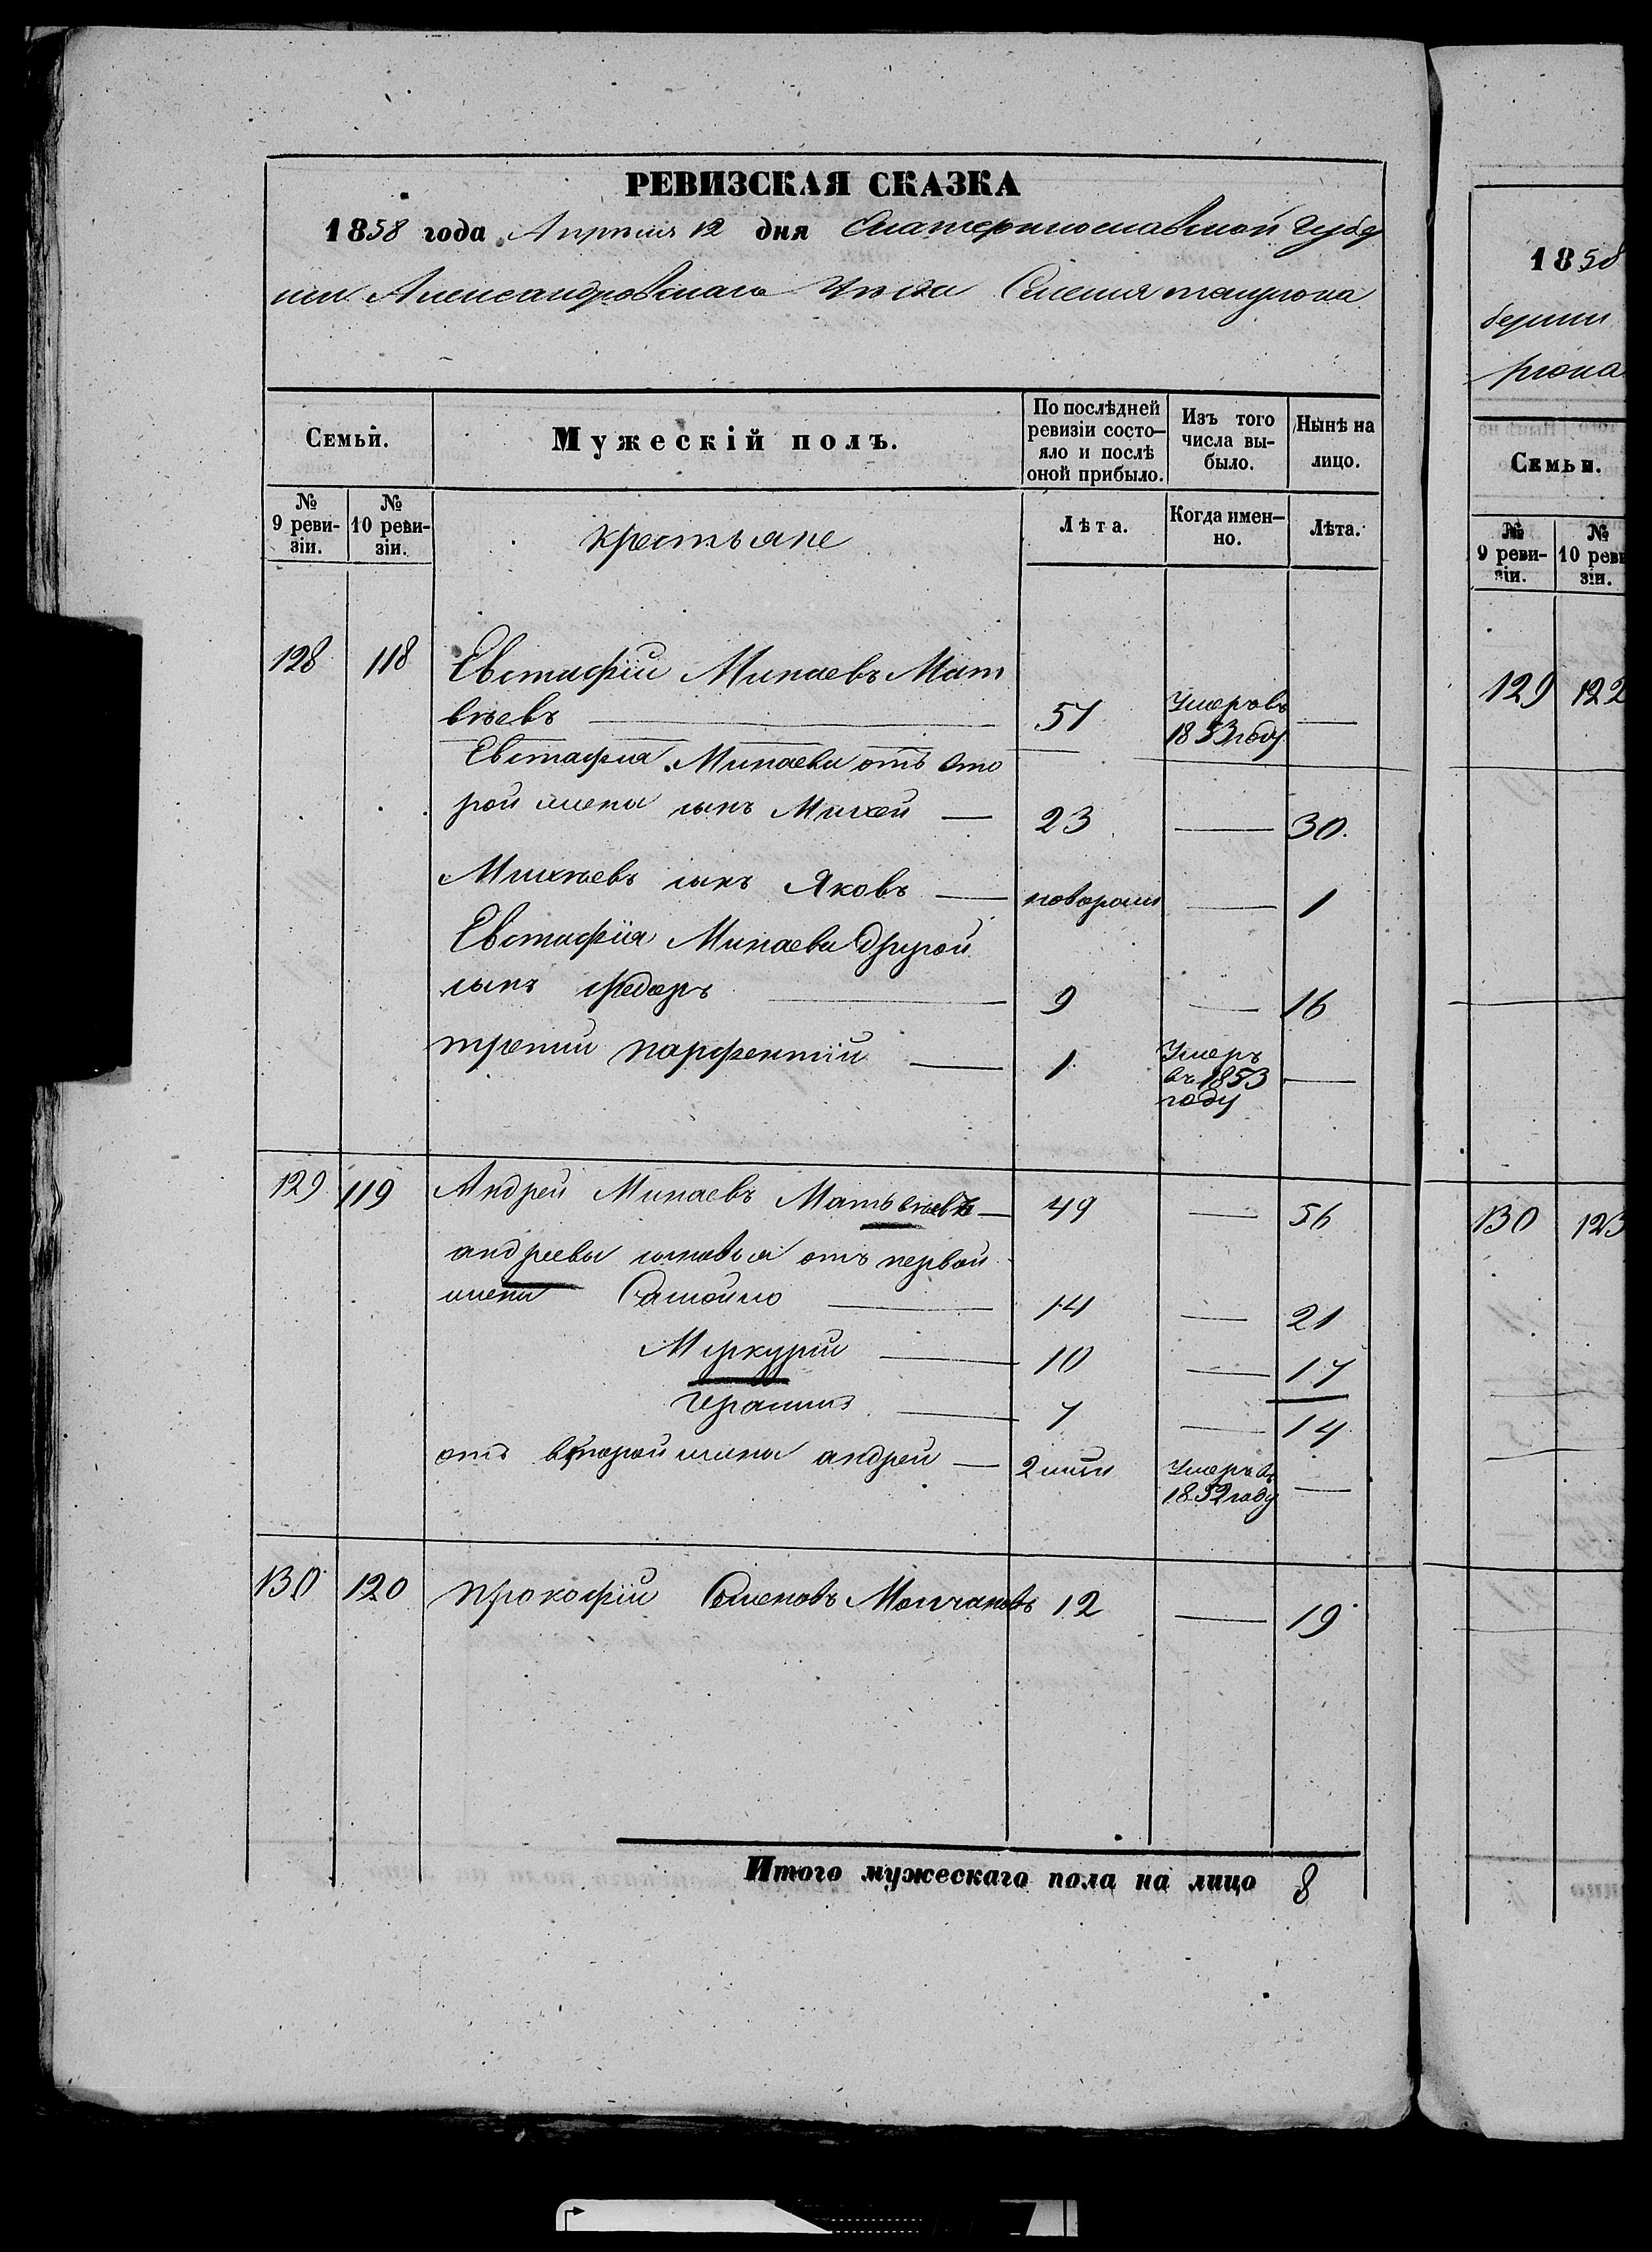 РЕВИЗСКАЯ СКАЗКА
1858 года Апрѣля 12 дня Екатеринославской Губер
нии Александровскаго Уѣзда Селения
Семьи.
Мужескій полъ.
По послѣдней ревизіи состо-яло и послѣ оной прибыло.
Изъ того числа вы-было.
Нынѣ на лицо.
№ 9 реви-зіи.
№ 10 реви-зіи.
крестьяне
Лѣта.
Когда имен-но.
Лѣта.
128 118 Евстафій Минаевъ Мат
вѣевъ — 51 Умеръ въ 1853 году —
Евстафия Минаева отъ вто
рой жены сынъ Михей — 23 — 30
Михѣевъ сынъ Яковъ — новорожд — 1
Евстафія Минаева другой
сынъ Федоръ — 9 — 16
третий парфентій — 1 Умеръ въ 1853 году —
129 119 Андрей Минаевъ Матвѣевъ — 49 — 56
андреевы сыновья отъ первой
жены Самойло — 14 — 21
Меркурий — 10 — 17
Герасимъ — 7 — 14
отъ второй жены андрей — 2 Умеръ въ 1852 году —
130 120 прокофій Семеновъ Молчановъ 12 — 19
Итого мужескаго пола на лицо 8
1858
бернии
Семьи.
№ 9 реви-зіи.
№ 10 реви зіи.
129 122
130 123